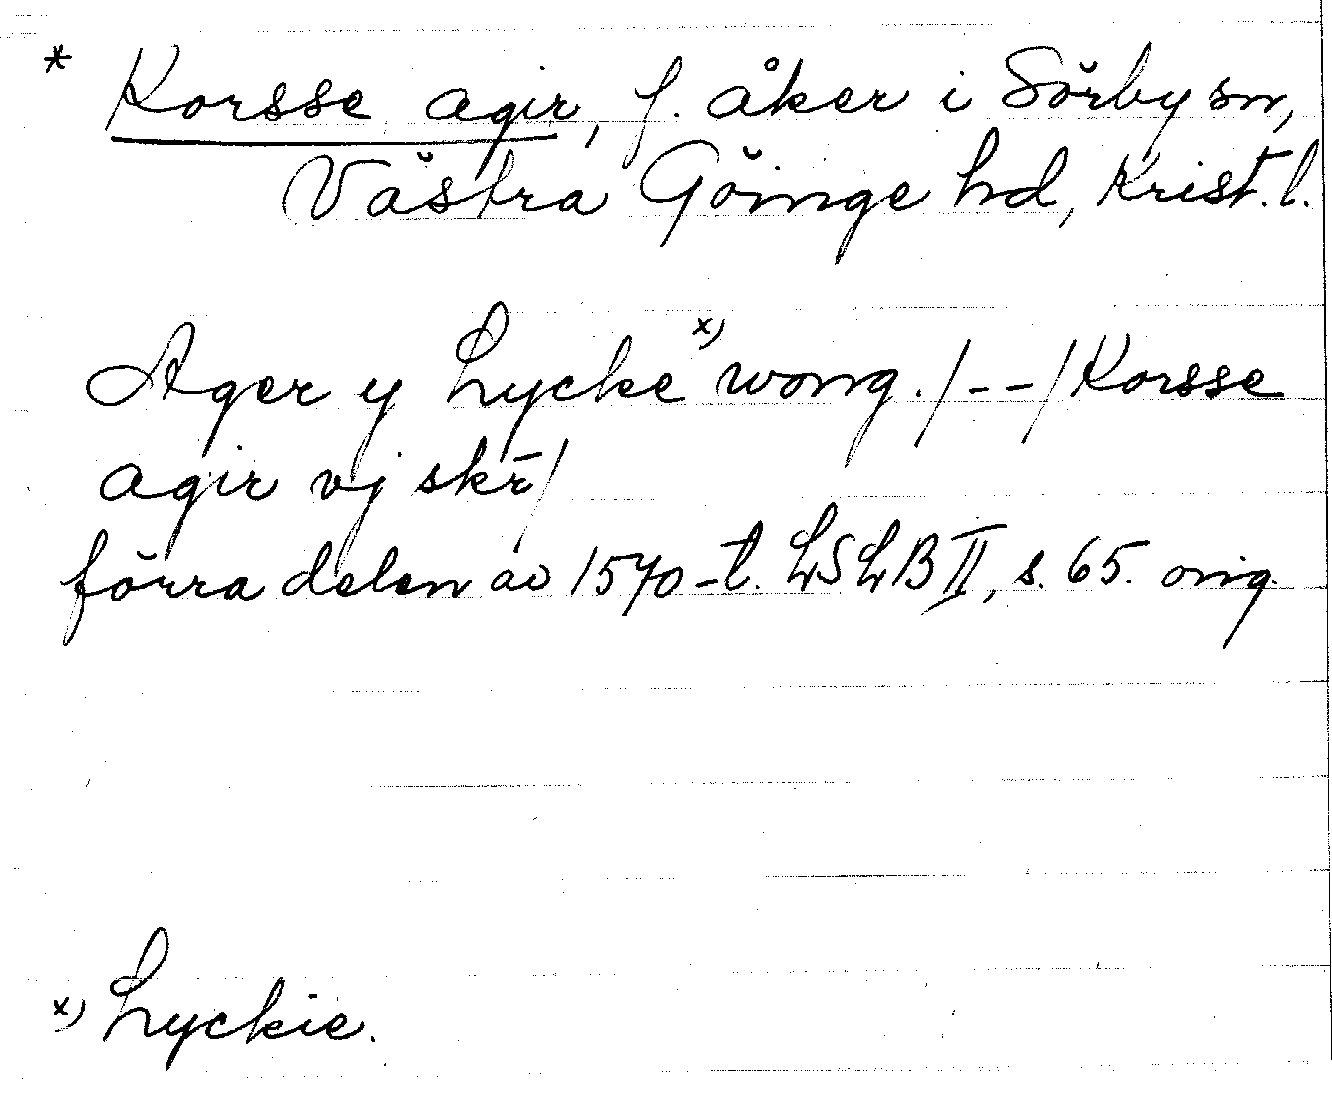 * Korsse agir, f. åker i Sörby sn,
Västra Göinge hd, Krist. l.
Ager y Lycke x) wong. /--/ Korsse
agir vj skr̄/
förra delen av 1570-t. LSLB II, s. 65. orig.
x) Lyckie.